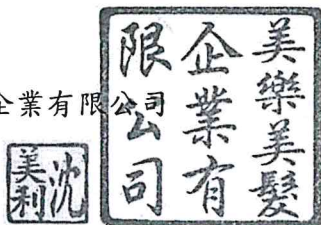 企業有限公司
美樂美髮
企業有
限公司
沈
美利